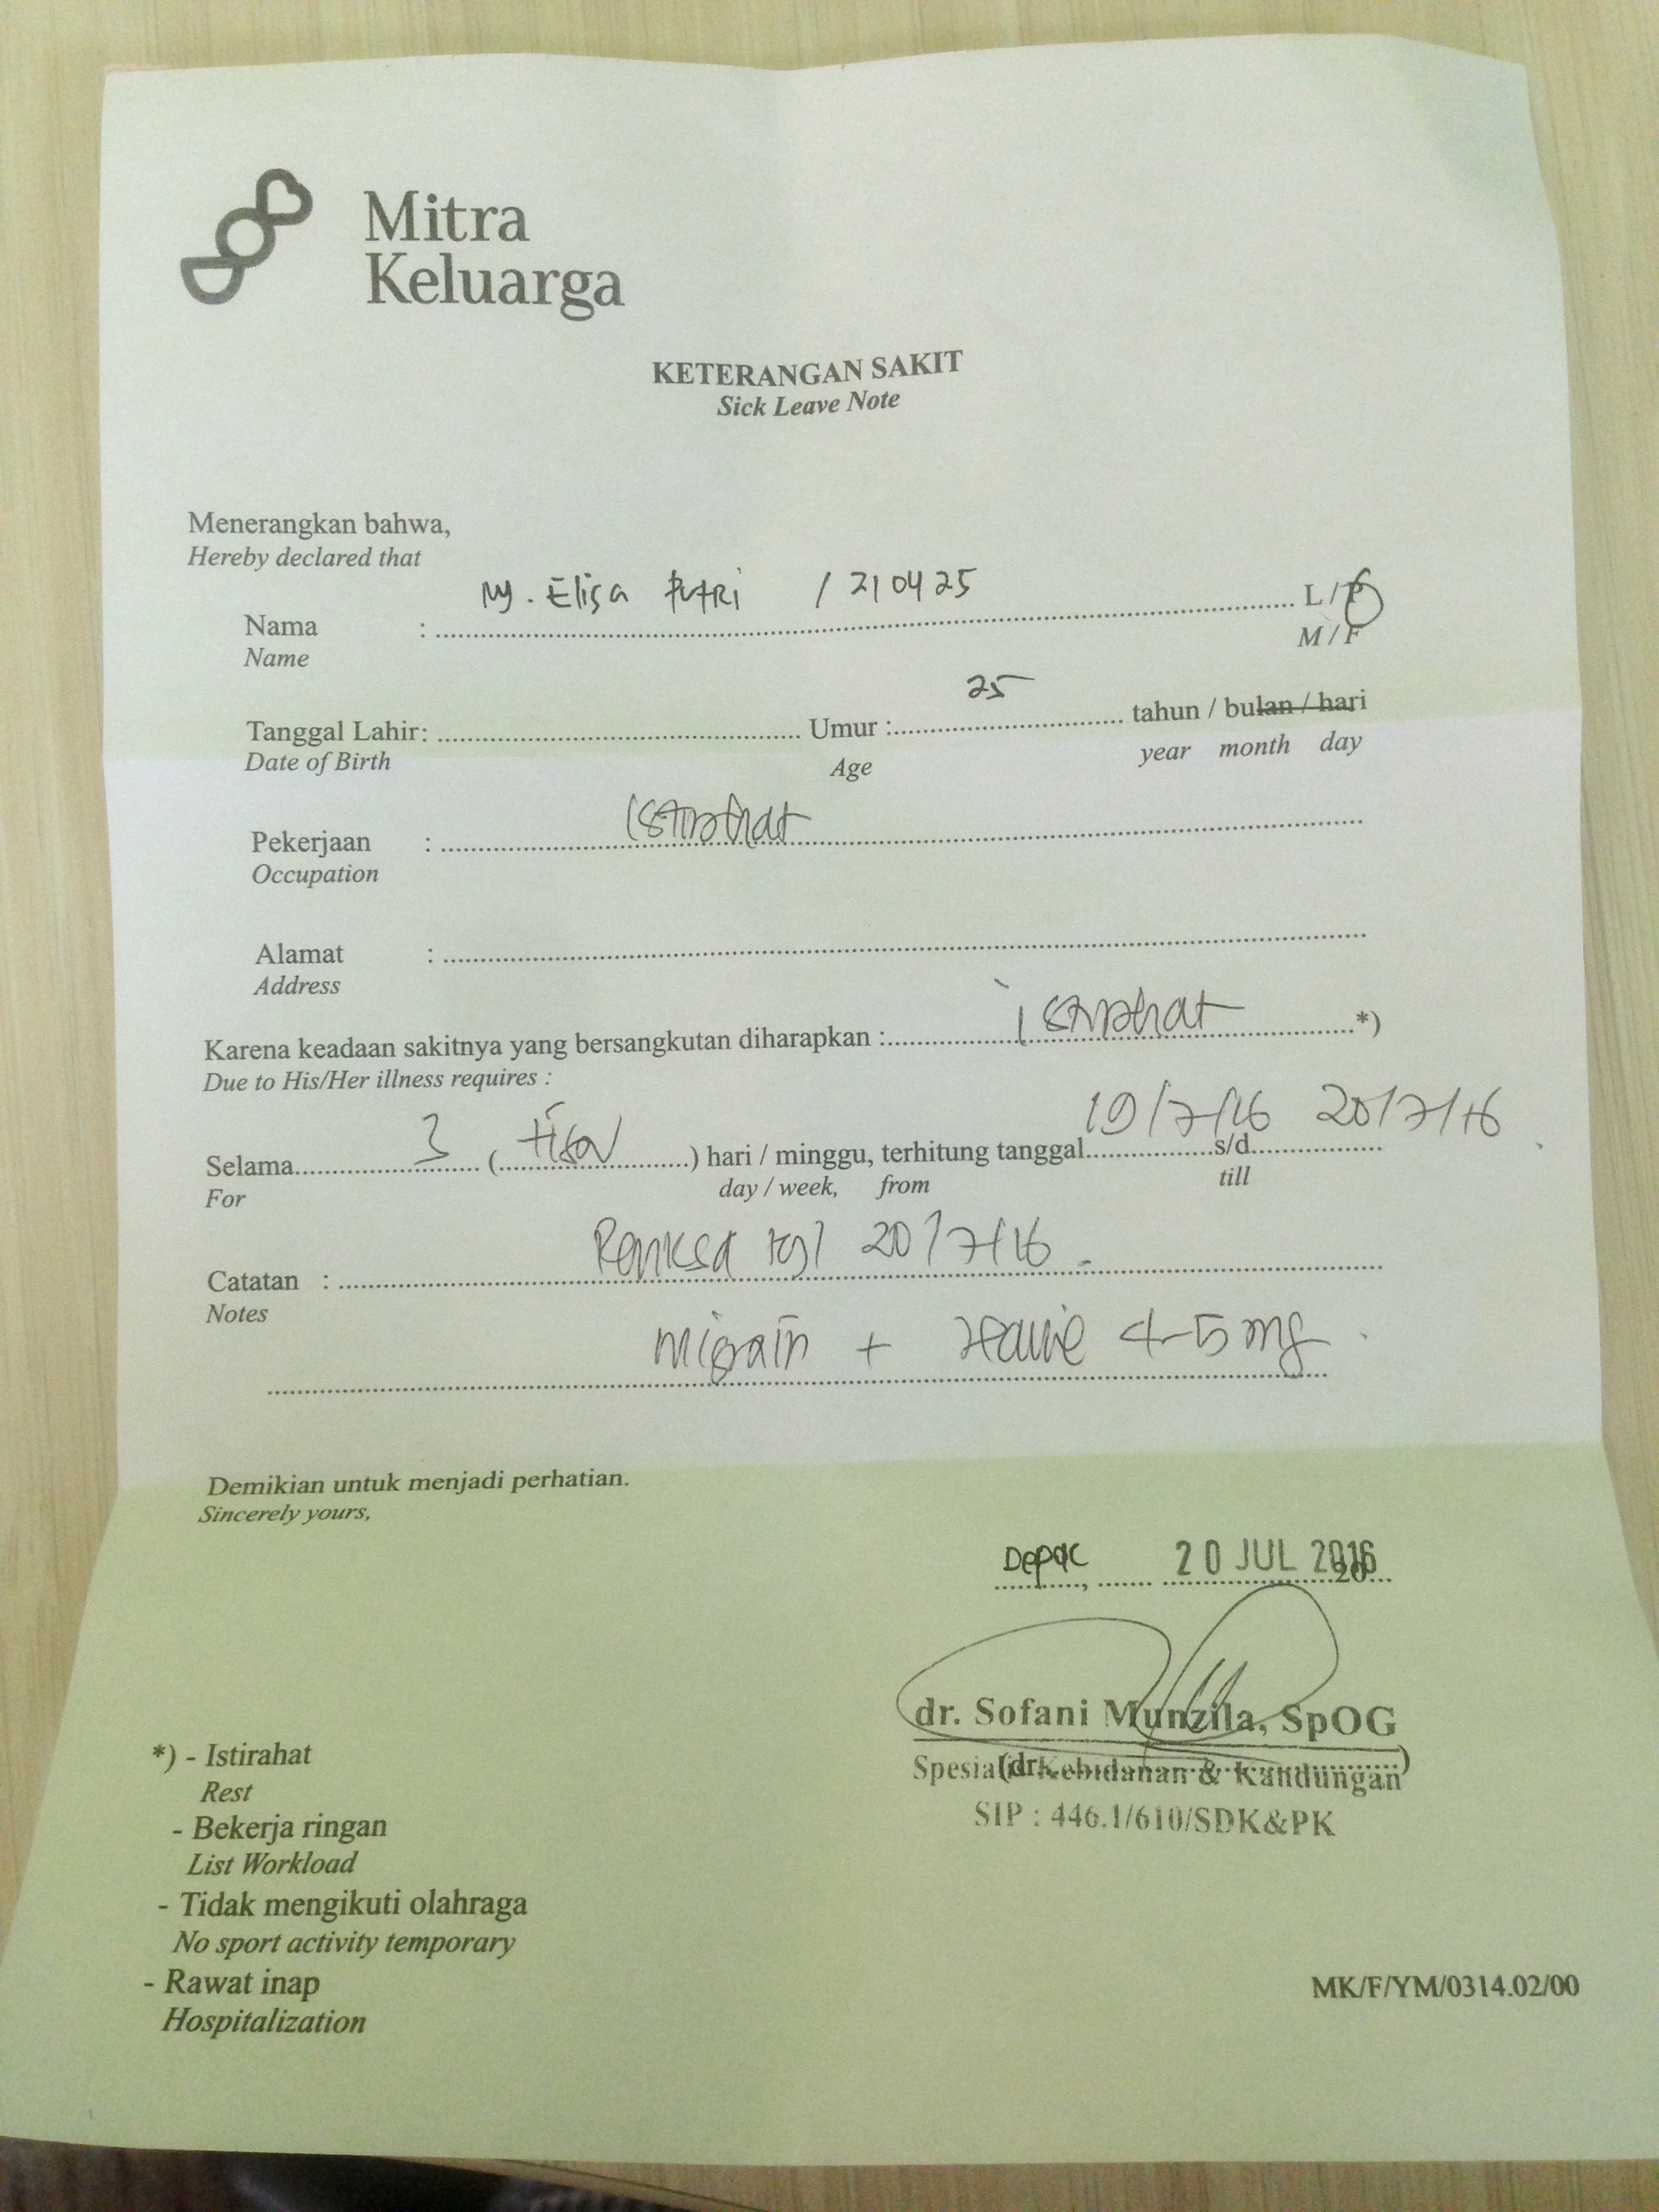 Mitra
Keluarga
KETERANGAN SAKIT
Sick Leave Note
Menerangkan bahwa,
Hereby declared that
Nama : Ny. Elisa Putri / 210425 L / P
Name M / F
Tanggal Lahir: Umur : 25 tahun / bulan / hari
Date of Birth Age year month day
Pekerjaan : istirahat
Occupation
Alamat :
Address
Karena keadaan sakitnya yang bersangkutan diharapkan : istirahat *)
Due to His/Her illness requires :
Selama 3 ( ) hari / minggu, terhitung tanggal 19/7/16 s/d 20/7/16
For day / week, from till
Catatan : Periksa tgl 20/7/16
Notes
migrain + 4-5 mg
Demikian untuk menjadi perhatian.
Sincerely yours,
Depok, 20 JUL 2016
dr. Sofani Munzila, SpOG
Spesialis Kebidanan & Kandungan
(dr. )
SIP : 446.1/610/SDK&PK
*) - Istirahat
Rest
- Bekerja ringan
List Workload
- Tidak mengikuti olahraga
No sport activity temporary
- Rawat inap
Hospitalization
MK/F/YM/0314.02/00